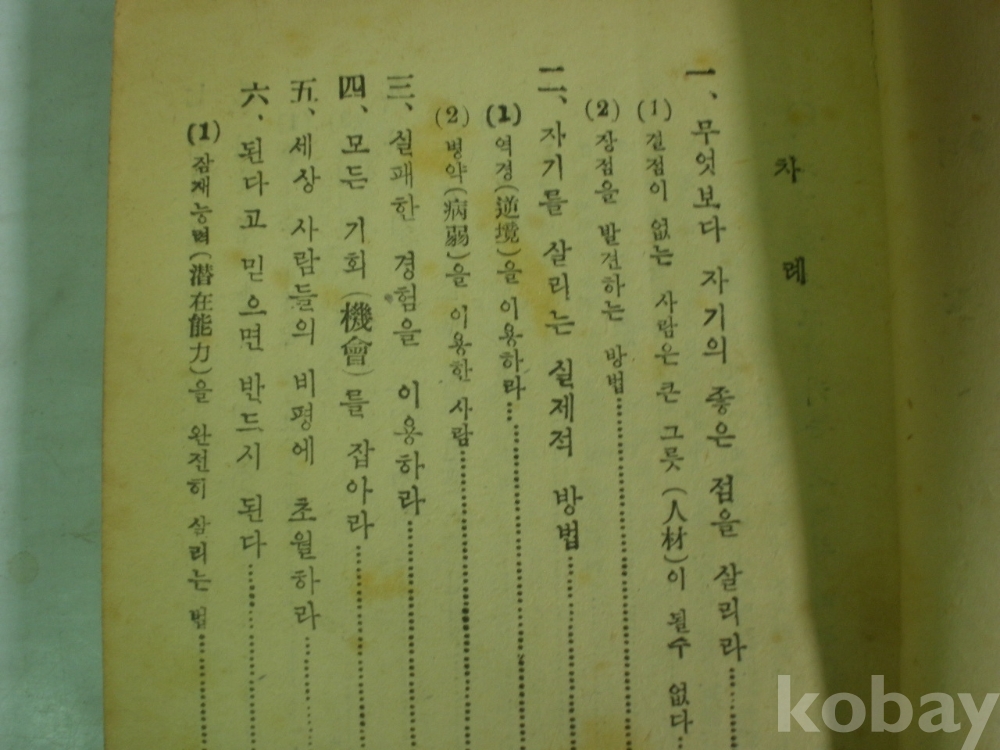 차 례
一、무엇보다 자기의 좋은 점을 살리라
(1) 결점이 없는 사람은 큰 그릇(人材)이 될수 없다
(2) 장점을 발견하는 방법
二、자기를 살리는 실제적 방법
(1) 역경(逆境)을 이용하라
(2) 병약(病弱)을 이용한 사람
三、실패한 경험을 이용하라
四、모든 기회(機會)를 잡아라
五、세상 사람들의 비평에 초월하라
六、된다고 믿으면 반드시 된다
(1) 잠재능력(潜在能力)을 완전히 살리는 법
kobay